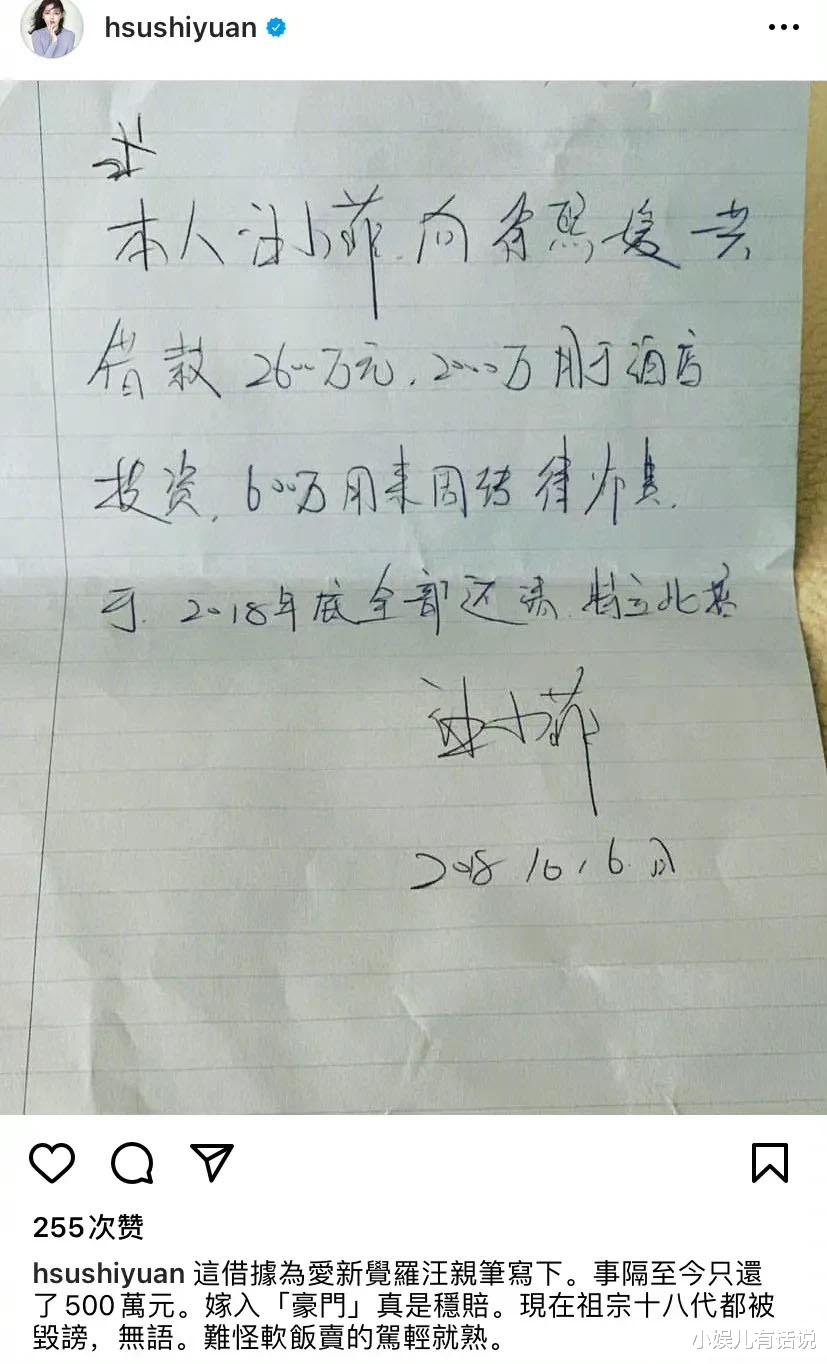 hsushiyuan
本人汪小菲向徐熙媛共
借款2600万元,2000万用于酒店
投资,600万用来周转律师费.
于2018年底全部还清.特立此据
汪小菲
2018 10,6.日
255次赞
hsushiyuan 這借據為愛新覺羅汪親筆寫下。事隔至今只還
了500萬元。嫁入「豪門」真是穩賠。現在祖宗十八代都被
毀謗，無語。難怪軟飯賣的駕輕就熟。
小娱儿有话说